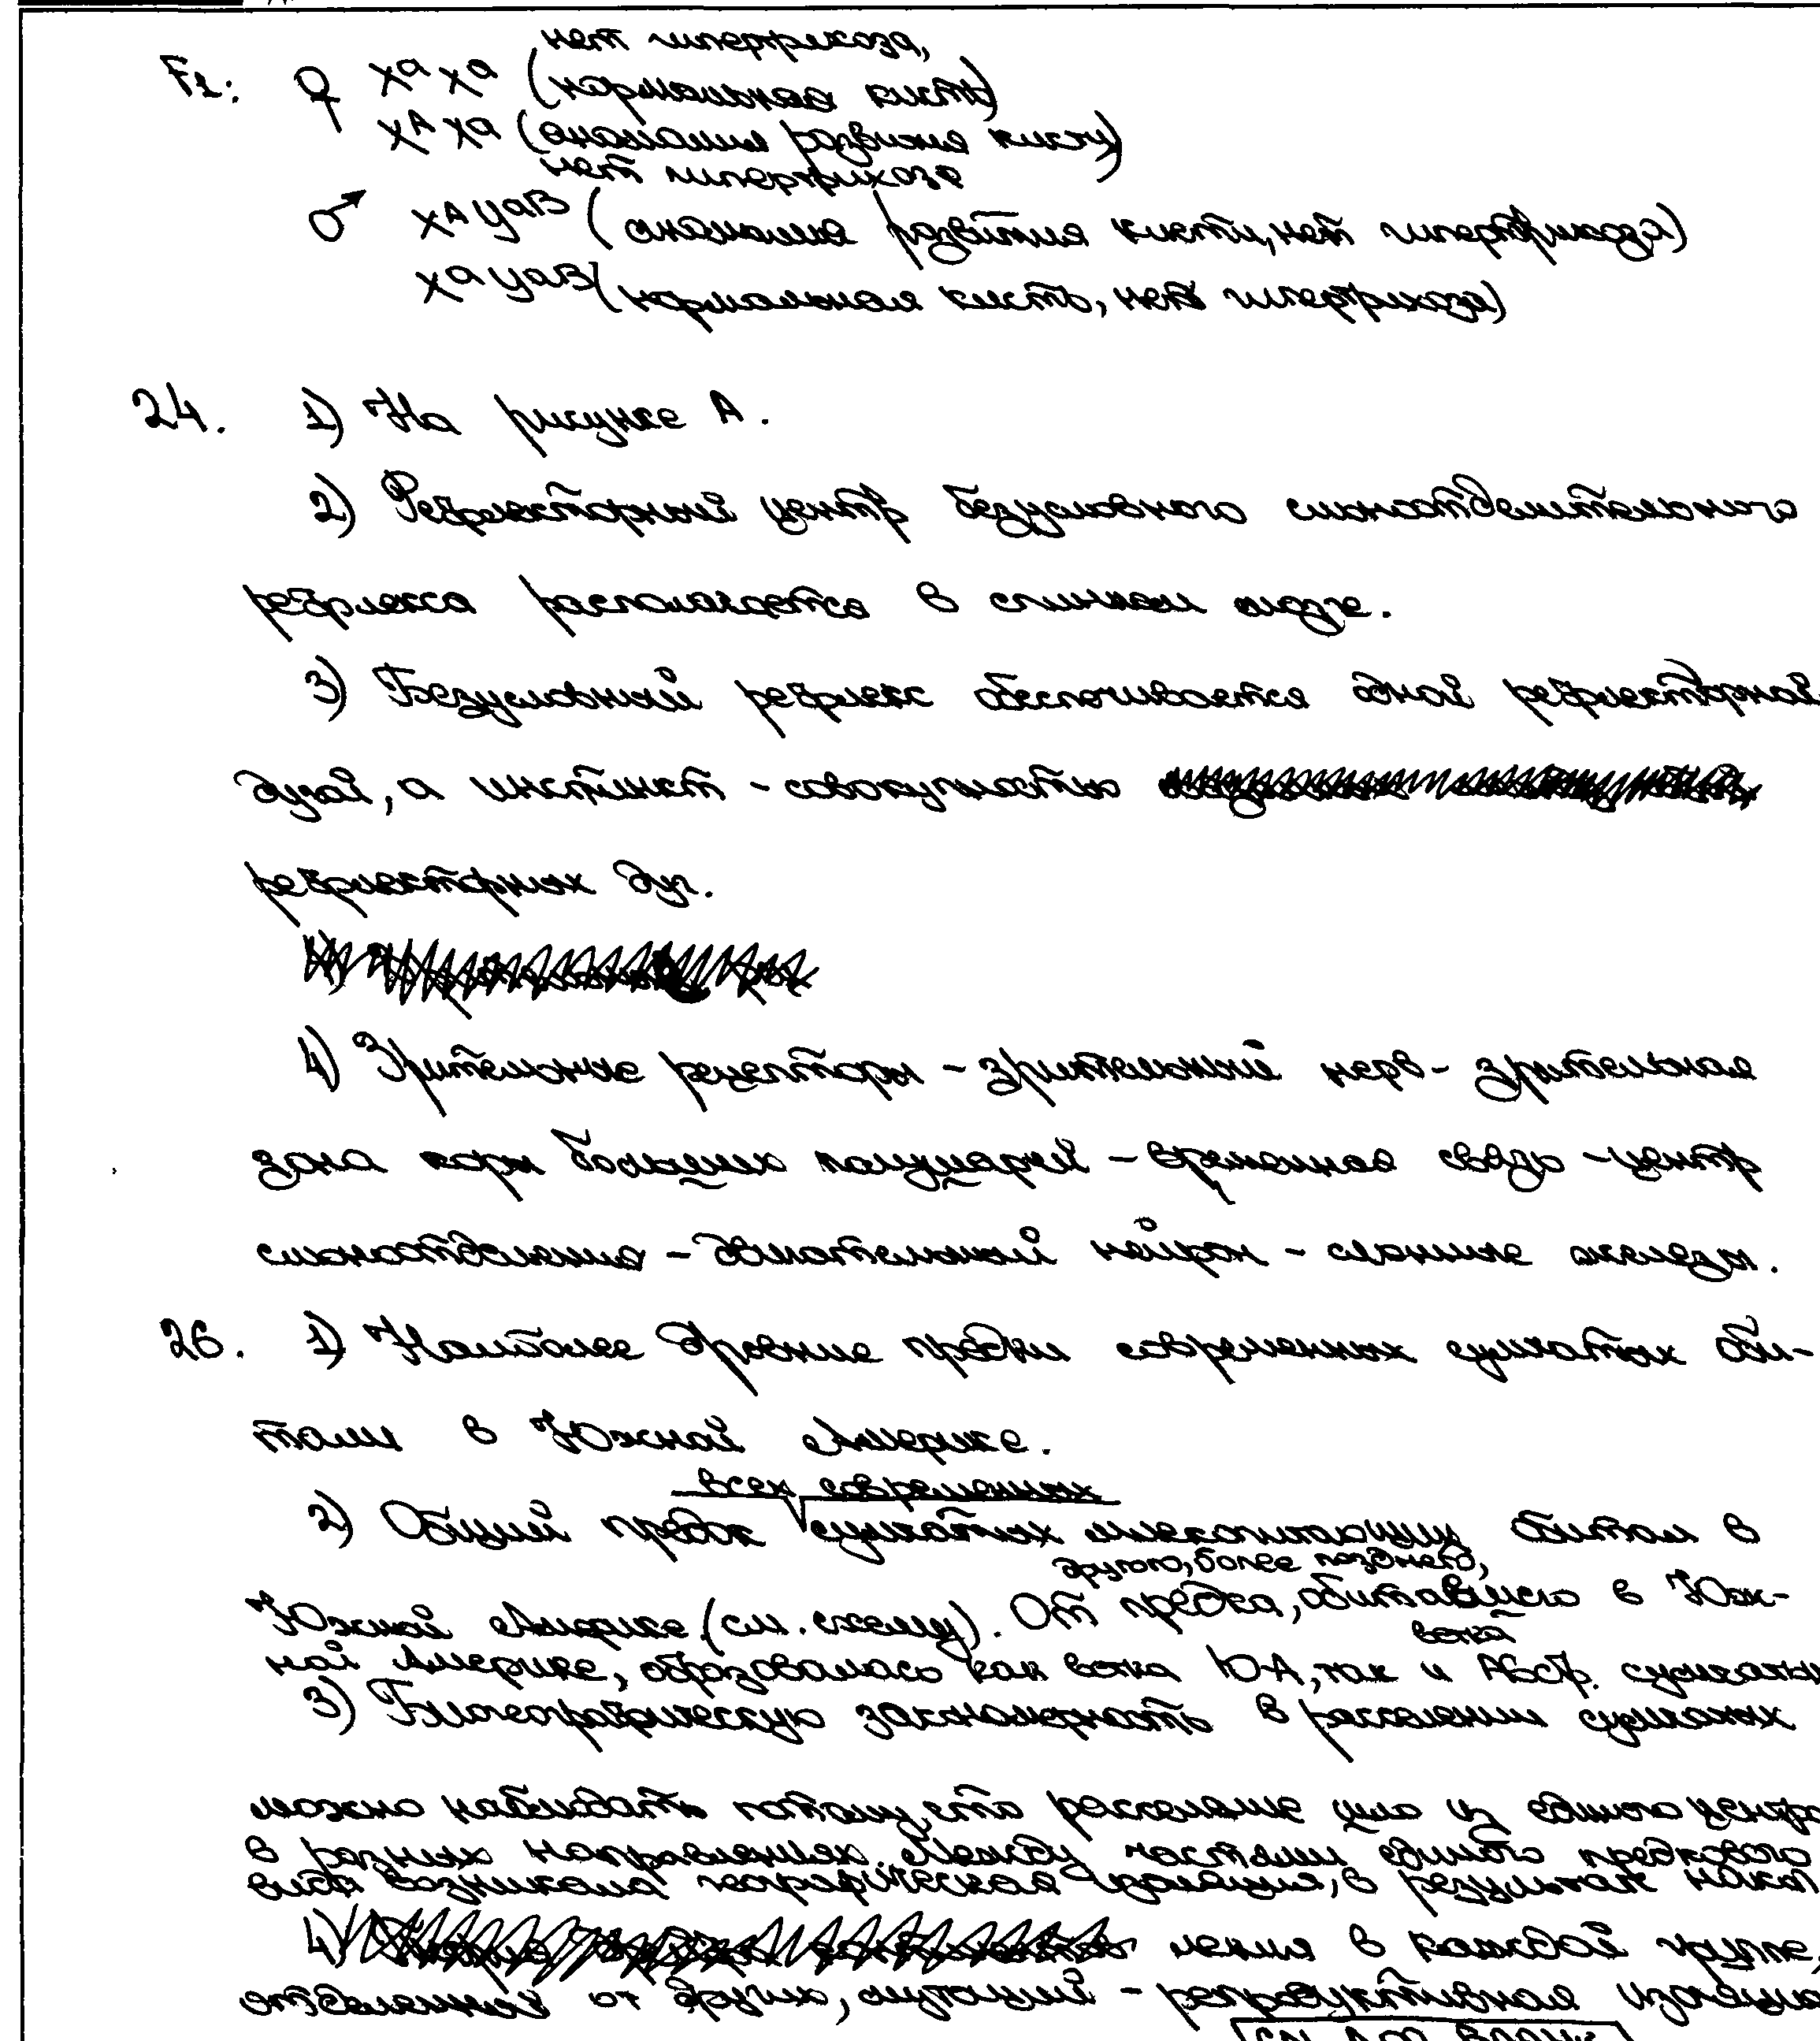 нет гипертрихоза,
F1: ♀ XᵃXᵃ (нормальная кисть)
XᴬXᵃ (аномалия развития кисти)
нет гипертрихоза
♂ XᴬYᵃᴮ (аномалия развития кисти, нет гипертрихоза)
XᵃYᵃᴮ (нормальная кисть, нет гипертрихоза)
24. 1) На рисунке А.
2) Рефлекторный центр безусловного слюноотделительного
рефлекса располагается в спинном мозге.
3) Безусловный рефлекс обеспечивается одной рефлекторной
дугой, а инстинкт - совокупностью
рефлекторных дуг.
4) Зрительные рецепторы - зрительный нерв - зрительная
зона коры больших полушарий - временная связь - центр
слюноотделения - двигательный нейрон - слюнные железы.
26. 1) Наиболее древние предки современных сумчатых оби-
тали в Южной Америке.
всех современных
2) Общий предок сумчатых млекопитающих обитал в
другого, более позднего,
Южной Америке (см. схему). От предка, обитавшего в Юж-
ветка
ной Америке, образовалась как ветка Ю-А, так и Австр. сумчатых
3) Биогеографическую закономерность в расселении сумчатых
можно наблюдать потому, что расселение шло из единого центра
в разных направлениях. Между частями единого предкового
вида возникала географическая изоляция, в результате накоп
4) ления в каждой группе,
отделенной от других, мутаций - репродуктивная изоляция
см. доп. бланк